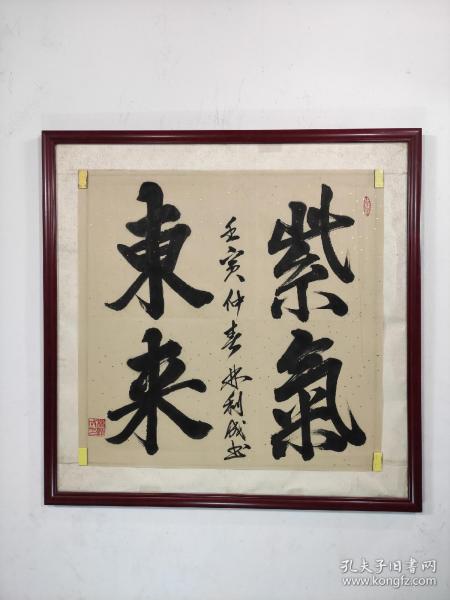 紫氣
東来
壬寅仲春 林利成书
孔夫子旧书网
www.kongfz.com